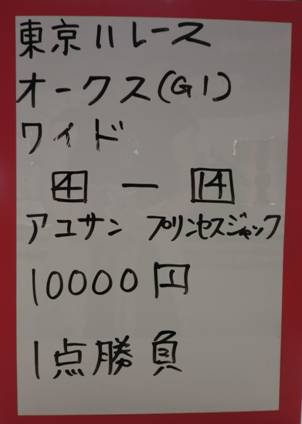 東京11レース
オークス(G1)
ワイド
4 — 14
アユサン プリンセスジャック
10000円
1点勝負